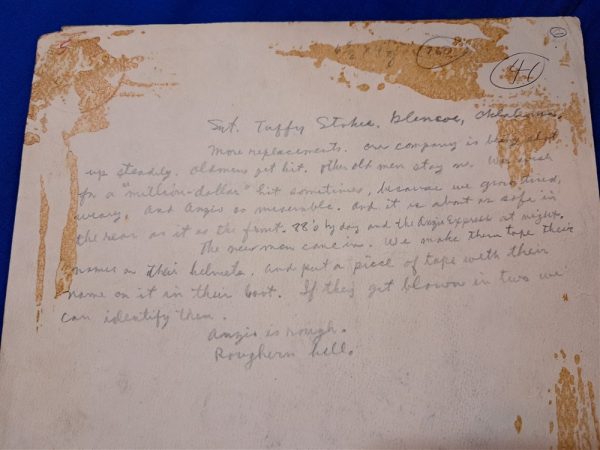 46
Sgt. Tuffy Stokes. Glencoe, Oklahoma.
More replacements. Our company is being shot
up steadily. Old men get hit. Other old men stay on. We wish
for a "million-dollar" hit sometimes, because we grow tired,
weary. And Anzio so miserable. And it is about as safe in
the rear as it as the front. 88's by day and the Anzio Express at night.
The new men come in. We make them tape their
names on their helmets, and put a piece of tape with their
name on it in their boot. If they get blown in two we
can identify them.
Anzio is rough.
Rougher'n hell.